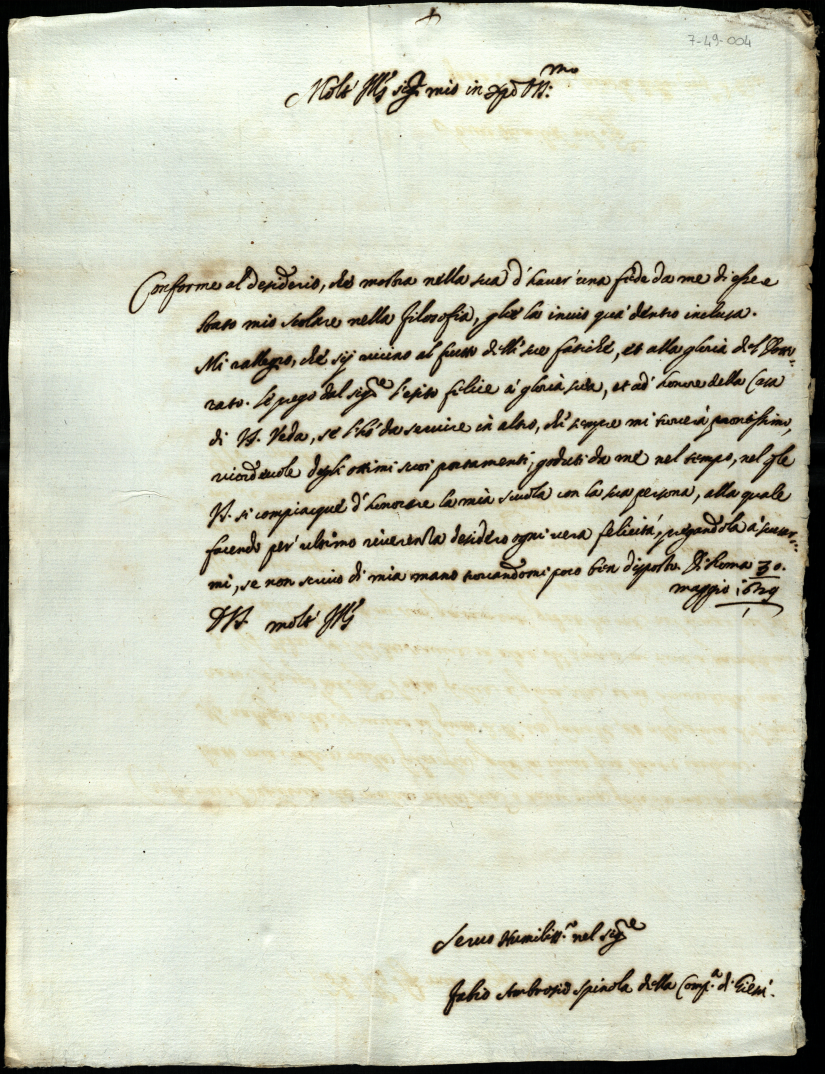 7-49-004
Molt' Ill.^e sig.^r mio in xpo Oss.^mo
Conforme al desiderio, che mostra nella sua d'haver una fede da me di essere
stato mio scolare nella filosofia, glie la invio quà dentro inclusa.
Mi rallegro, che sij vicino al frutto delle sue fatiche, et alla gloria del Dotto=
rato. Le prego dal sig.^re l'esito felice à gloria sua, et ad honore della Casa
di V.S. Veda, se l'hò da servire in altro, che sempre mi troverà prontissimo,
ricordevole degli ottimi suoi portamenti, goduti da me nel tempo, nel q.le
V.S. si compiacque d'honorare la mia scuola con la sua persona, alla quale
facendo per ultimo riverenza desidero ogni vera felicità, pregandola à scusar=
mi, se non scrivo di mia mano trovandomi poco ben disposto. Di Roma 30.
maggio 1629
D V.S. molt' Ill.^e
Servo Humiliss.^o nel sig.^re
Fabio Ambrosio Spinola della Comp.^a di Giesù.